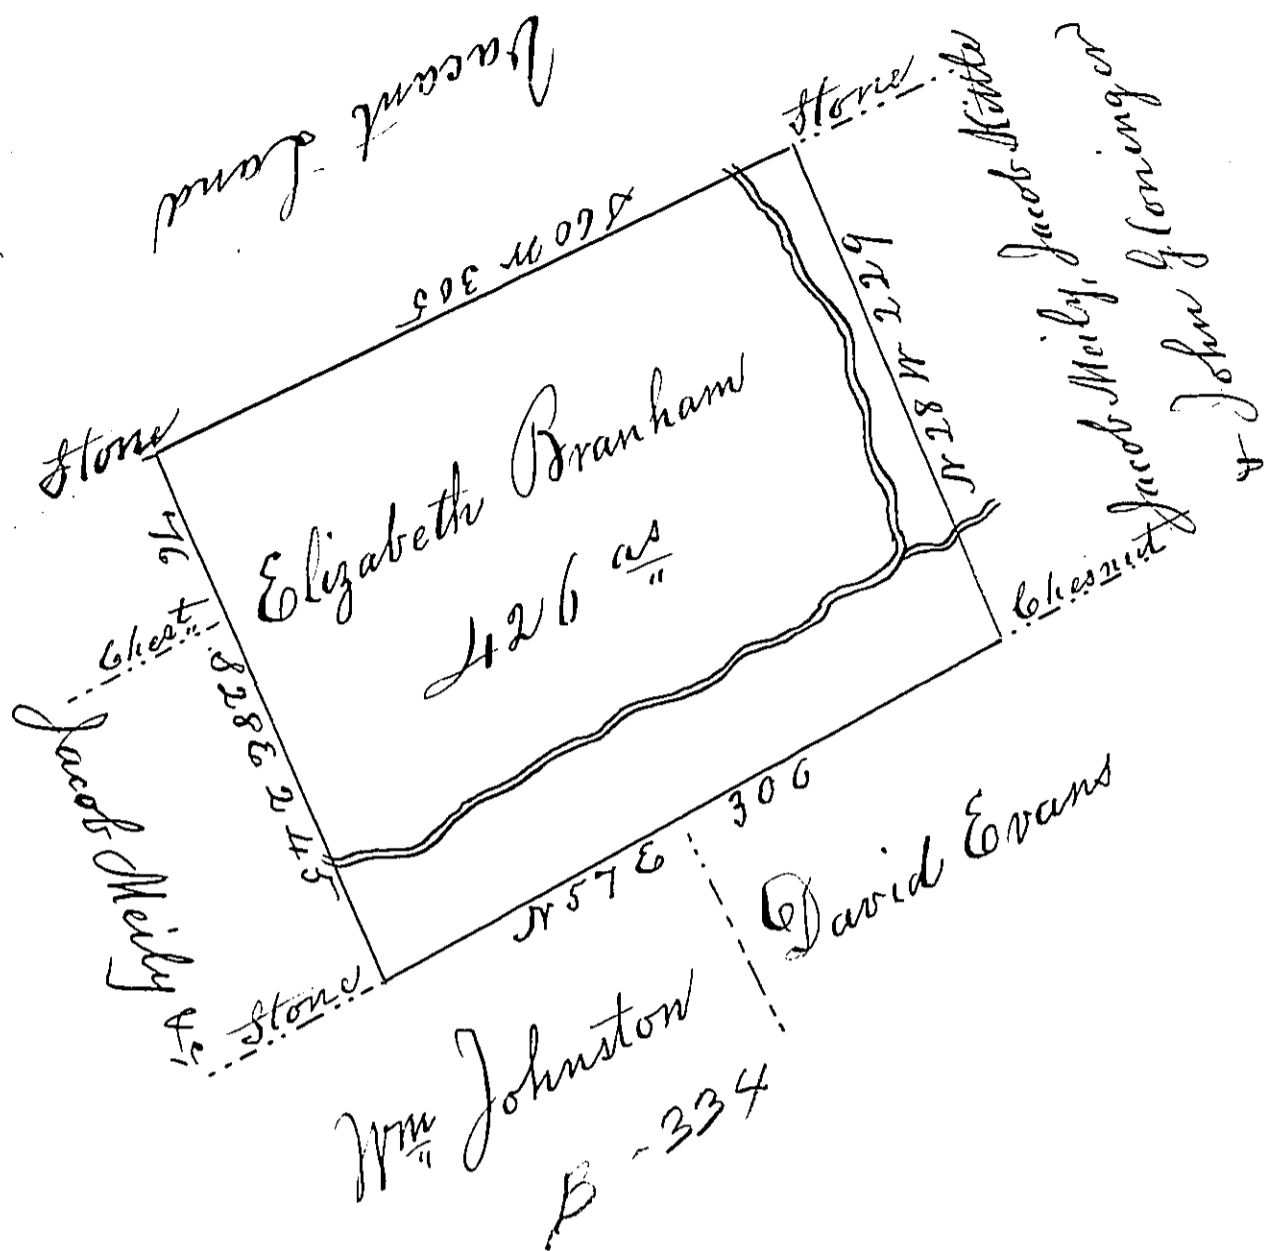 Vacant Land
Stone
S 60 W 305
Stone
N 28 W 229
Jacob Meily, Jacob Kittle
& John Gloninger
Chesnut
Elizabeth Branham
426 as
76
Chest
S 28 E 245
Jacob Meily &c
Stone
N 57 E 306
David Evans
Wm Johnston
B - 334